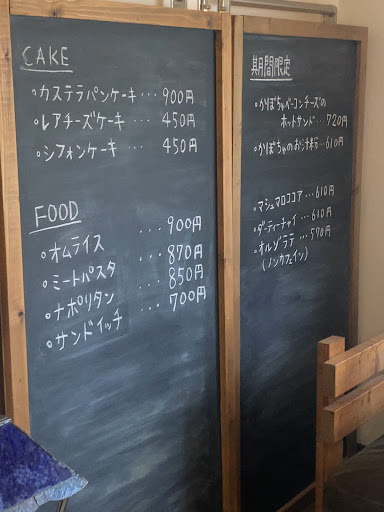 CAKE
・カステラパンケーキ・・・900円
・レアチーズケーキ・・・450円
・シフォンケーキ・・・450円
FOOD
・オムライス・・・900円
・ミートパスタ・・・870円
・ナポリタン・・・850円
・サンドイッチ・・・700円
期間限定
・かぼちゃベーコンチーズの
ホットサンド・・・720円
・かぼちゃのおしるこ・・・610円
・マシュマロココア・・・610円
・ダーティーチャイ・・・610円
・オルゾラテ・・・570円
(ノンカフェイン)